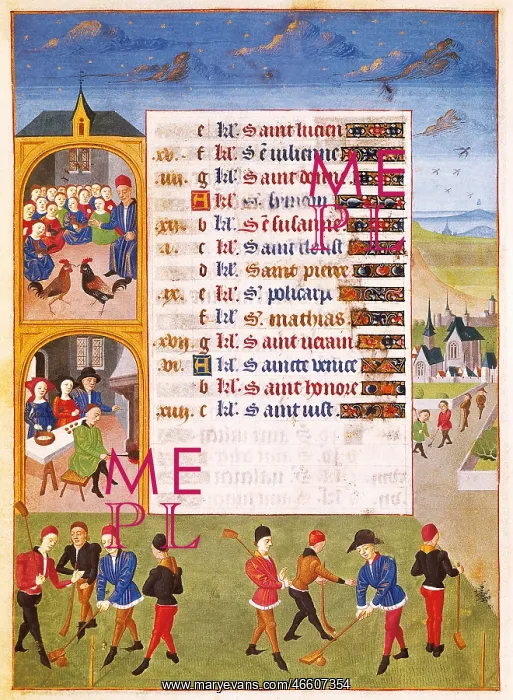 e kl' Saint lucien
.xv. f kl' Sᵉ iulienne
.iiii. g kl' Saint
A kl' Sᵗ. symeon
.xii. b kl' Sᵉ susanne
.i. c kl' Saint
d kl' Saint pierre
.ix. e kl' Sᵗ. policarp
f kl' Sᵗ. mathias
.xvii. g kl' Saint
.vi. A kl' Saincte venice
b kl' Saint honore
.xiiii. c kl' Saint iust.
ME
PL
ME
PL
www.maryevans.com/46607354